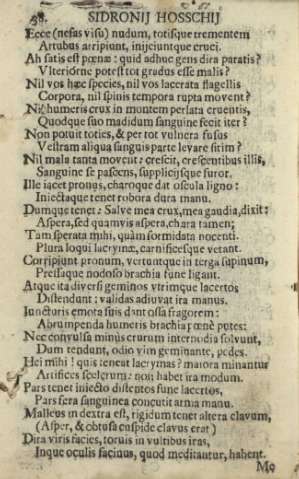 38. SIDRONIJ HOSSCHIJ
Ecce (nefas visu) nudum, totisque trementem
Artubus arripiunt, injiciuntque cruci.
Ah satis est pœnæ: quid adhuc gens dira paratis?
Vlteriórne potest tot gradus esse malis?
Nil vos hæc species, nil vos lacerata flagellis
Corpora, nil spinis tempora rupta movent?
Nil humeris crux in montem perlata cruentis,
Quodque suo madidum sanguine fecit iter?
Non potuit toties, & per tot vulnera fusus
Vestram aliqua sanguis parte levare sitim?
Nil mala tanta movent: crescit, crescentibus illis,
Sanguine se pascens, suppliciisque furor.
Ille jacet pronus, charoque dat oscula ligno:
Iniectaque tenet robora dura manu.
Dumque tenet: Salve mea crux, mea gaudia, dixit:
Aspera, sed quamvis aspera, chara tamen;
Tam sperata mihi, quàm formidata nocenti.
Plura loqui lacrymæ, carnificesque vetant.
Corripiunt pronum, vertuntque in terga supinum,
Presaque nodoso brachia fune ligant.
Atque ita diversi geminos vtrimque lacertos
Distendunt: validas adiuvat ira manus.
Iuncturis emota suis dant ossa fragorem:
Abrumpenda humeris brachia pœnè putes:
Nec convulsa minùs crurum internodia solvunt,
Dum tendunt, odio vim geminante, pedes.
Hei mihi! quis teneat lacrymas? maiora minantur
Artifices scelerum: non habet ira modum.
Pars tenet iniecto distentos fune lacertos,
Pars fera sanguinea concutit arma manu.
Malleus in dextra est, rigidum tenet altera clavum,
(Asper, & obtusa cuspide clavus erat)
Dira viris facies, torvis in vultibus iras,
Inque oculis facinus, quod meditantur, habent.
Me